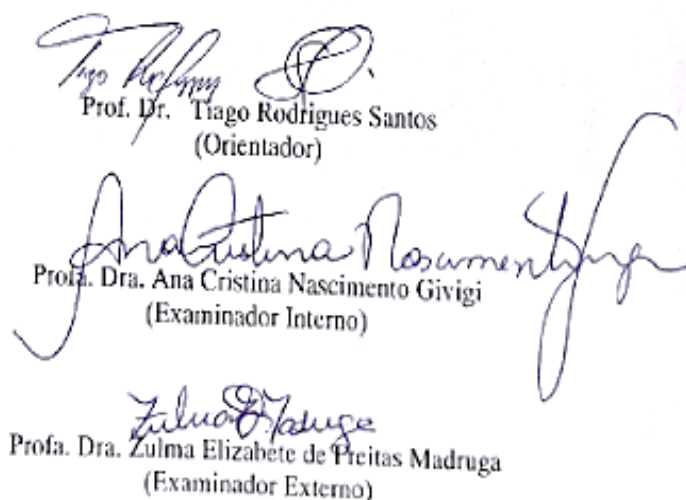 Prof. Dr. Tiago Rodrigues Santos
(Orientador)
Ana Cristina Nascimento
Profa. Dra. Ana Cristina Nascimento Givigi
(Examinador Interno)
Zulma Madruga
Profa. Dra. Zulma Elizabete de Freitas Madruga
(Examinador Externo)